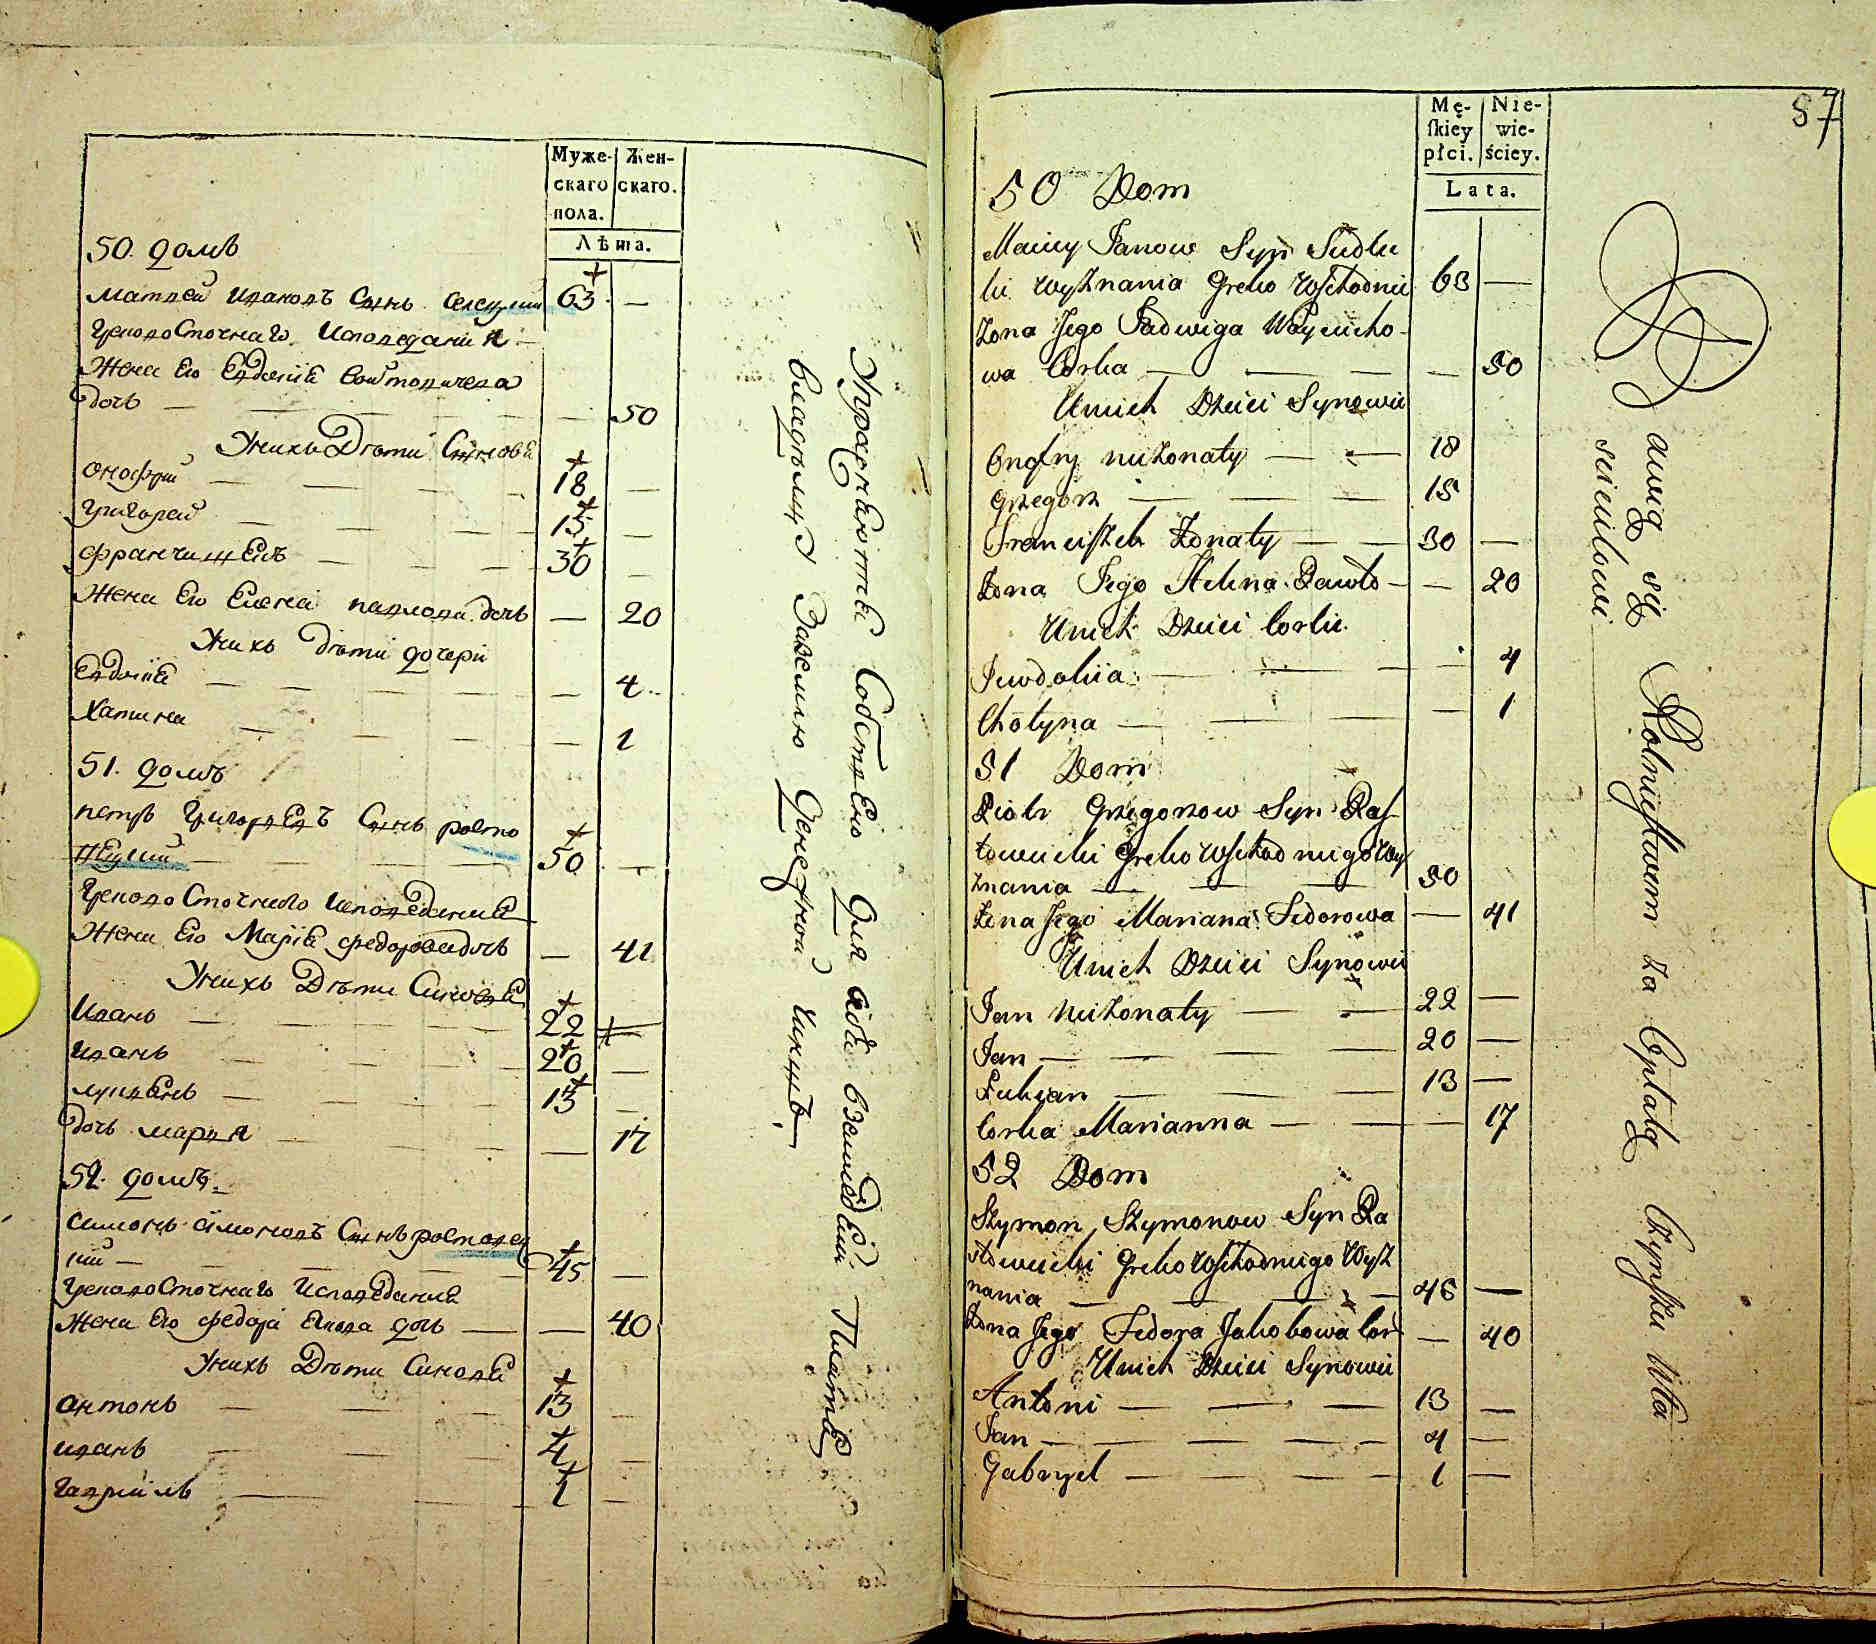 Муже-
скаго
пола.
Жен-
скаго.
Лѣта.
50. домъ
Матвей Ивановъ Сынъ 63 —
Грековосточнаго Исповедания —
Жена Его Евдокия Войтовичева
дочь — 50
У них Дѣти Синове
Онофрий — 18 —
Григорей — 15 —
Францишекъ — 30 —
Жена Его Елена павлова дочь — 20
У них дѣти дочери
Евдокия — 4
Хатина — 1
51. домъ
петръ Григориевъ Сынъ росто
вецкий — 50 —
Грековосточнаго исповедания
Жена Его Мария федорова дочь — 41
У них Дѣти Синове
Иванъ — 22
иванъ — 20 —
лукиянъ — 13 —
дочь марья — 17
52. домъ
Симонъ Симоновъ Сынъ ростовец
кий — 45 —
Грековосточнаго Исповедания
Жена Его федора дочь — 40
У них Дѣти Синове
антонъ — 13 —
иванъ — 4 —
гаврийлъ — 1 —
Упражняются Собственно для себя вземледелии Платя
владѣльцу Заземлю Денежной чиншъ
87
Mę-
ſkiey
płci.
Nie-
wie-
ściey.
Lata.
50 Dom
Maciey Janow Syn Siedlec
ki Wyznania Greko Wschodnie 63 —
Zona Jego Jadwiga Woyciecho-
wa Corka — 50
U nich Dzieci Synowie
Onofry nieżonaty — 18
Grzegorz — 15
Franciszek Zonaty — 30 —
Zona Jego Helena Pawło — 20
U nich Dzieci Corki
Jewdokiia — 4
Chotyna — 1
51 Dom
Piotr Grzegorzow Syn Ras
towiecki Greko Wschodniego Wy
znania — 50
Zona Jego Mariana Fedorowa — 41
U nich Dzieci Synowie
Jan nieżonaty — 22 —
Jan — 20 —
Łukian — 13 —
Corka Marianna — 17
52 Dom
Szymon Szymonow Syn Ra
stowiecki Greko Wschodniego Wyz
nania — 45 —
Zona Jego Fedora Jakobowa Cor — 40
U nich Dzieci Synowie
Antoni — 13 —
Jan — 4 —
Gabryel — 1 —
Bawią się Rolnictwem za Opłatą Czynszu Wła
scicielowi